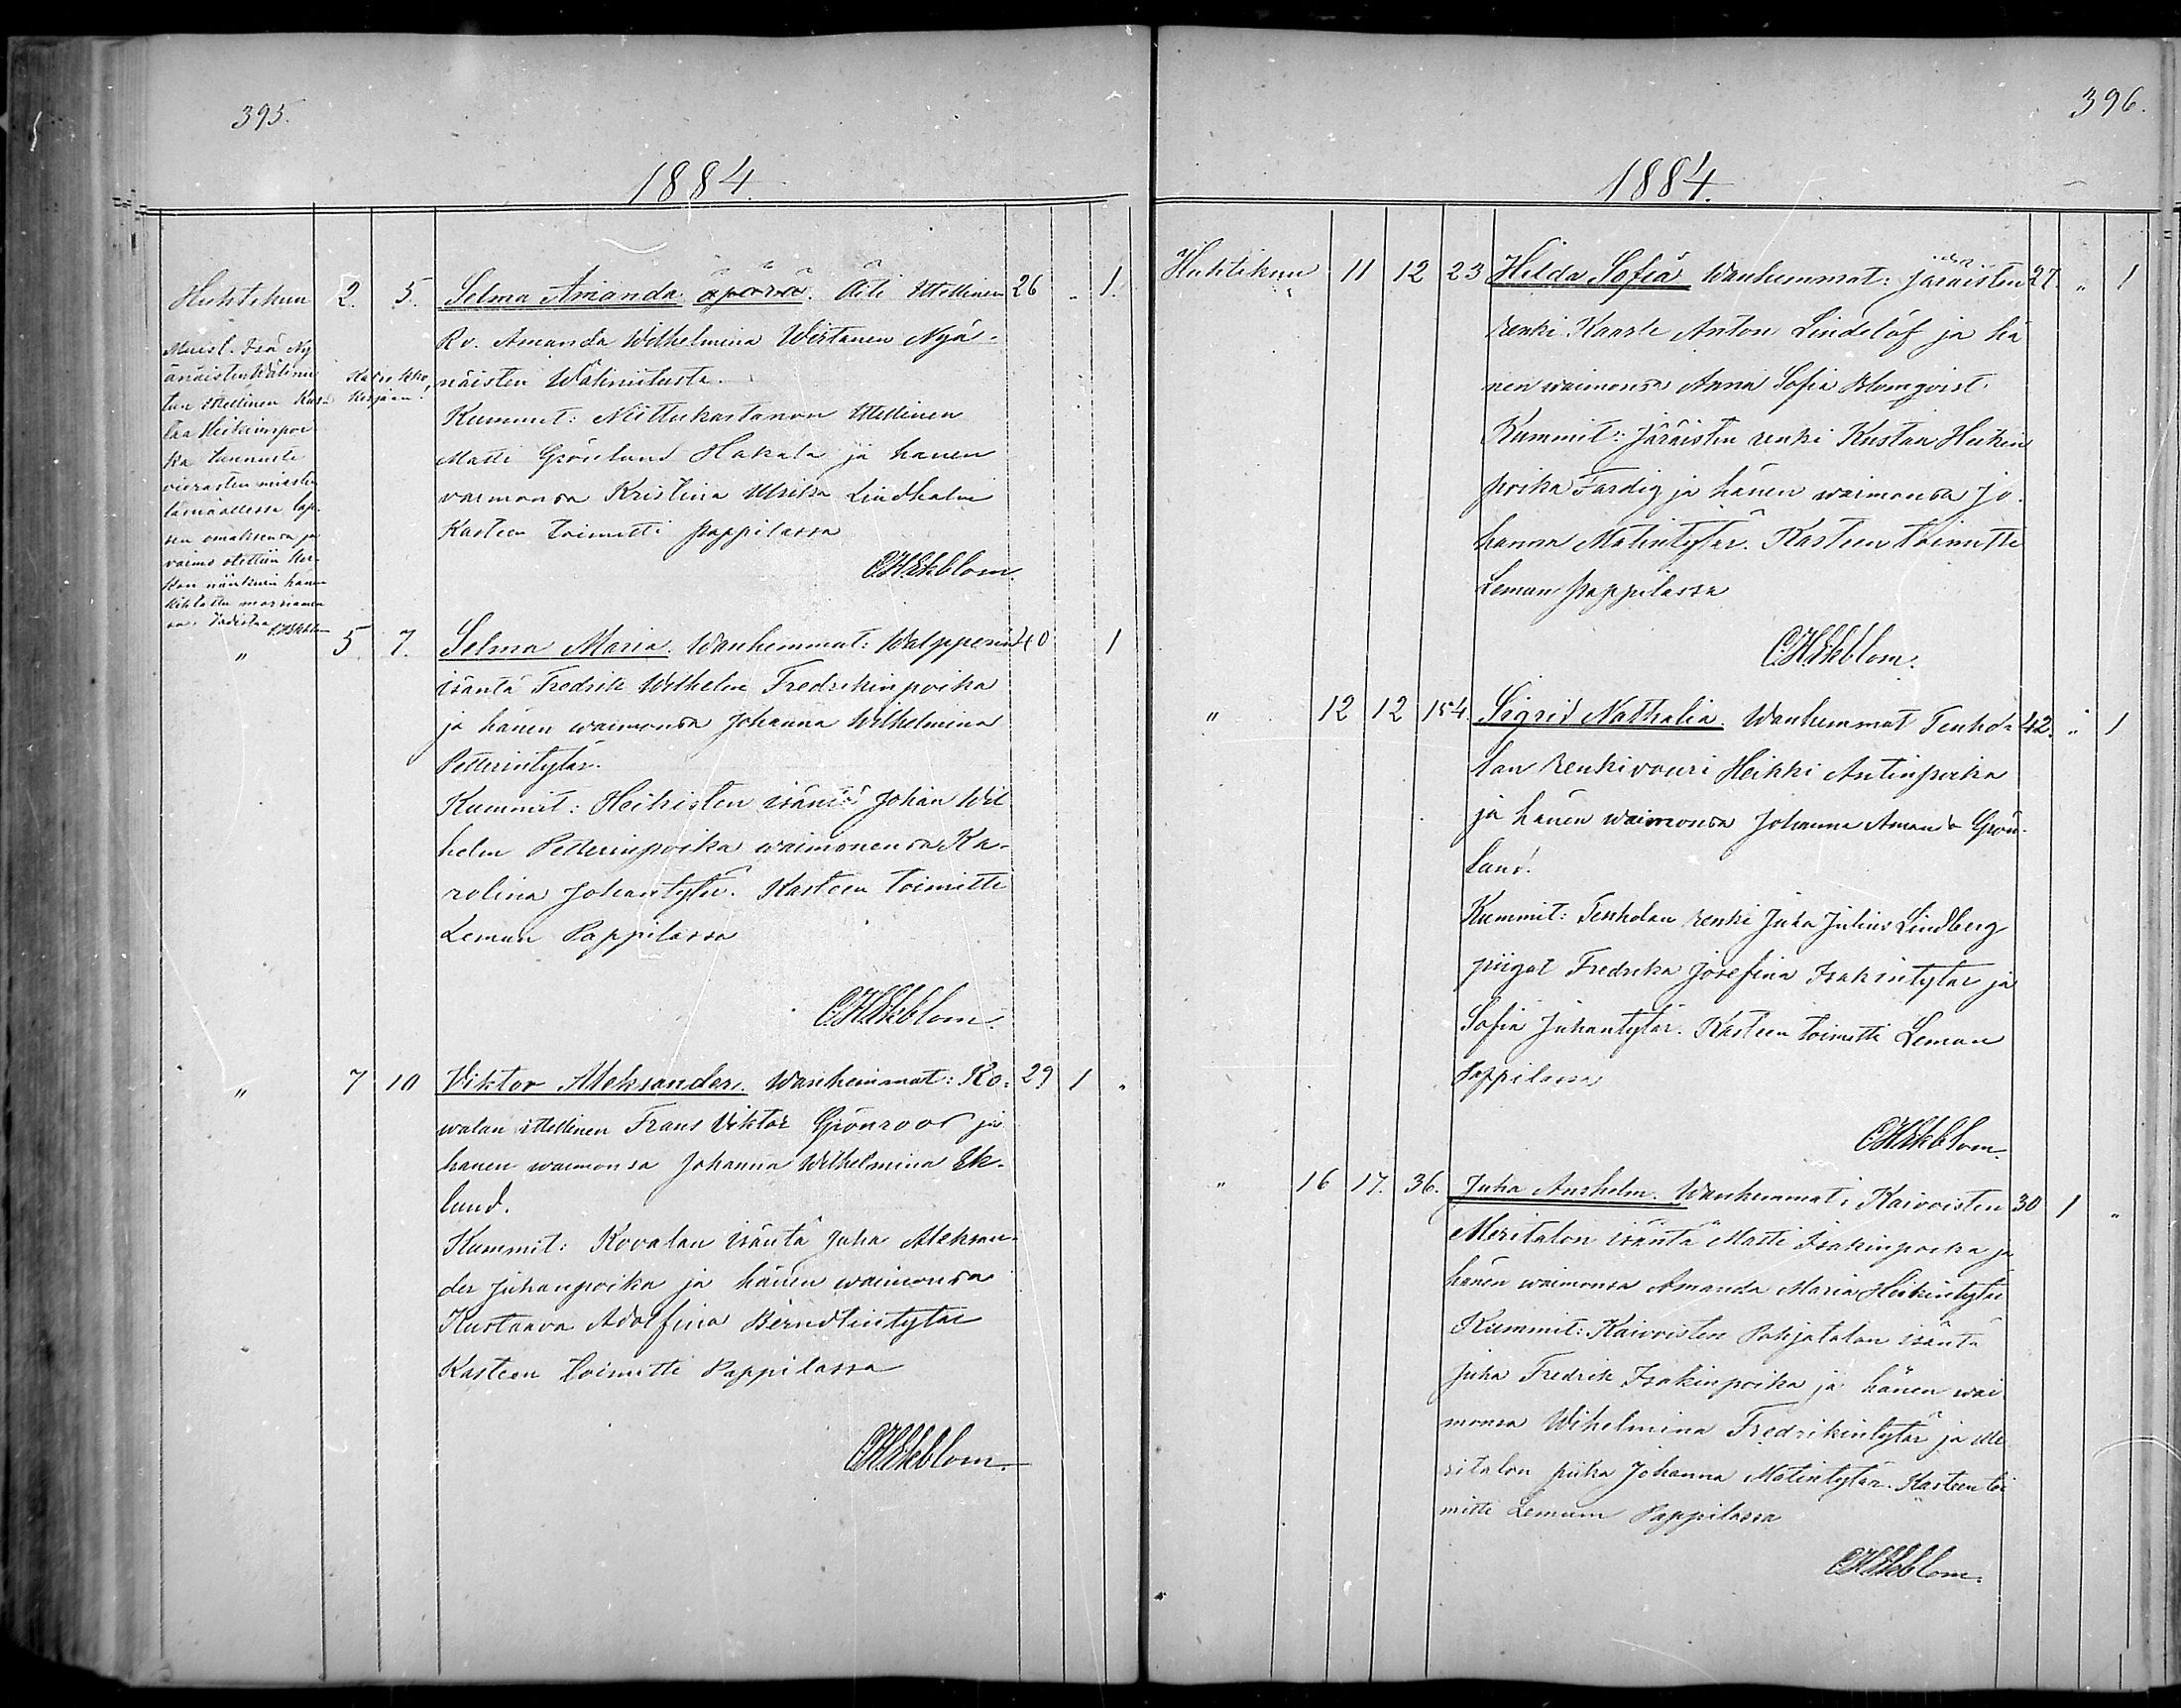 395.
1884.
Huhtikun 2. 5. Selma Amanda äpärä. Äiti Ittellinen 26 " 1.
Rv. Amanda Wilhelmina Wirtanen Nyä-
näisten Wälimitusta.
Kummit: Niittukartanon Ittellinen
Matti Grönlund Hakala ja hänen
vaimonsa Kristina Ulrika Lindholm
Kasteen toimitti Pappilassa
C.H.Ekblom.
Muist. Isä Ny
änäisten Wälimi
tun Ittellinen Kus-
taa Heikinpoi
ka tunnusti
vierasten miesten
läsnäollessa lap-
sen omaksensa ja
vaimo otettiin kir-
kon niinkuin hänen
kihlattu morsiamen
sa. Todistaa C.H.Ekblom
Katso kko.
kirjaan.
" 5. 7. Selma Maria. Wanhemmat: Walpperin 40 1
isäntä Fredrik Wilhelm Fredrikinpoika
ja hänen waimonsa Johanna Wilhelmina
Petterintytär.
Kummit: Heikisten isäntä Johan Wil
helm Petterinpoika waimonensa Ka-
rolina Johantytär. Kasteen toimitti
Lemun Pappilassa
C.H.Ekblom.
" 7 10 Viktor Aleksander. Wanhemmat: Ko- 29 1 "
walan ittellinen Frans Viktor Grönroos ja
hänen waimonsa Johanna Wilhelmina Ek-
lund.
Kummit: Kovalan isäntä Juha Aleksan-
der Juhanpoika ja hänen waimonsa
Kustaava Adolfina Berndtintytär
Kasteen toimitti Pappilassa
C.H.Ekblom.
396.
1884.
Huhtikun 11 12 23 Hilda Sofia Wanhemmat: Järäisten 27. " 1
renki Kaarle Anton Lindelöf ja hä
nen waimonsa Anna Sofia Blomqvist
Kummit: Järäisten renki Kustaa Heikin
poika Färdig ja hänen waimonsa Jo-
hanna Matintytär. Kasteen toimitti
Lemun Pappilassa
C.H.Ekblom.
" 12 12 154. Sigrid Nathalia. Wanhemmat Tenho- 42. " 1
lan renkivouri Heikki Antinpoika
ja hänen waimonsa Johanna Amanda Grön-
lund.
Kummit: Tenholan renki Juha Julius Lindberg
piigat Fredrika Josefina Isakintytär ja
Sofia Juhantytär. Kasteen toimitti Lemun
Pappilassa
C.H.Ekblom.
" 16 17. 36. Juha Anshelm. Wanhemmat: Kaivoisten 30 1 "
Meritalon isäntä Matti Isakinpoika ja
hänen waimonsa Amanda Maria Heikintytär
Kummit: Kaivoisten Pohjatalon isäntä
Juha Fredrik Isakinpoika ja hänen wai
monsa Wihelmina Fredrikintytär ja Me
ritalon piika Johanna Matintytär. Kasteen toi
mitti Lemun Pappilassa
C.H.Ekblom.